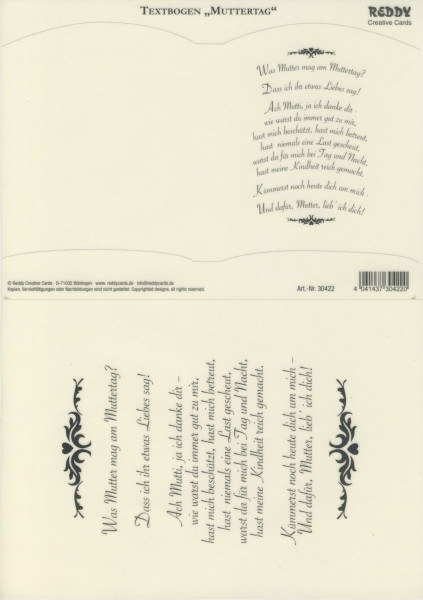 TEXTBOGEN „MUTTERTAG“
REDDY
Creative Cards
Was Mutter mag am Muttertag?
Dass ich ihr etwas Liebes sag!
Ach Mutti, ja ich danke dir -
wie warst du immer gut zu mir,
hast mich beschützt, hast mich betreut,
hast niemals eine Last gescheut,
warst da für mich bei Tag und Nacht,
hast meine Kindheit reich gemacht.
Kümmerst noch heute dich um mich -
Und dafür, Mutter, lieb´ ich dich!
© Reddy Creative Cards · D-71032 Böblingen · www.reddycards.de · info@reddycards.de
Kopien, Vervielfältigungen oder Nachbildungen sind nicht gestattet. Copyrighted designs, all rights reserved.
Art.-Nr. 30422
4 041437 304220
Was Mutter mag am Muttertag?
Dass ich ihr etwas Liebes sag!
Ach Mutti, ja ich danke dir –
wie warst du immer gut zu mir,
hast mich beschützt, hast mich betreut,
hast niemals eine Last gescheut,
warst da für mich bei Tag und Nacht,
hast meine Kindheit reich gemacht.
Kümmerst noch heute dich um mich –
Und dafür, Mutter, lieb´ ich dich!